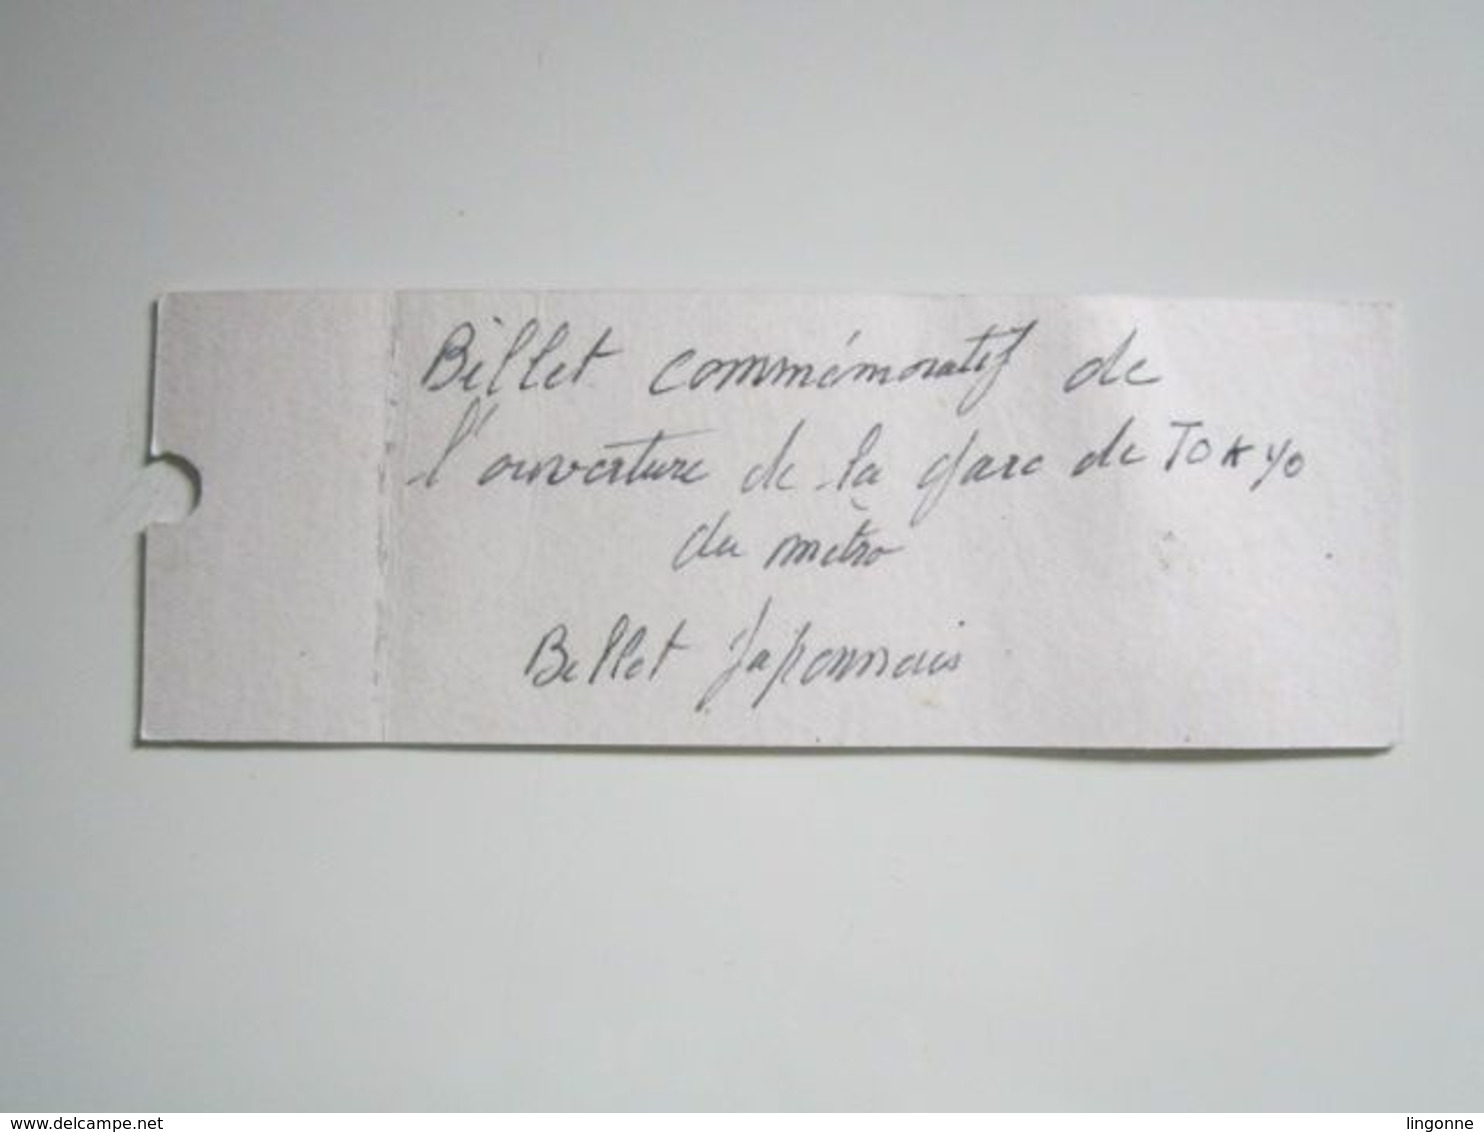 Billet commémoratif de
l'ouverture de la gare de TOKYO
du mètro
Billet Japonnais
www.delcampe.net
lingonne